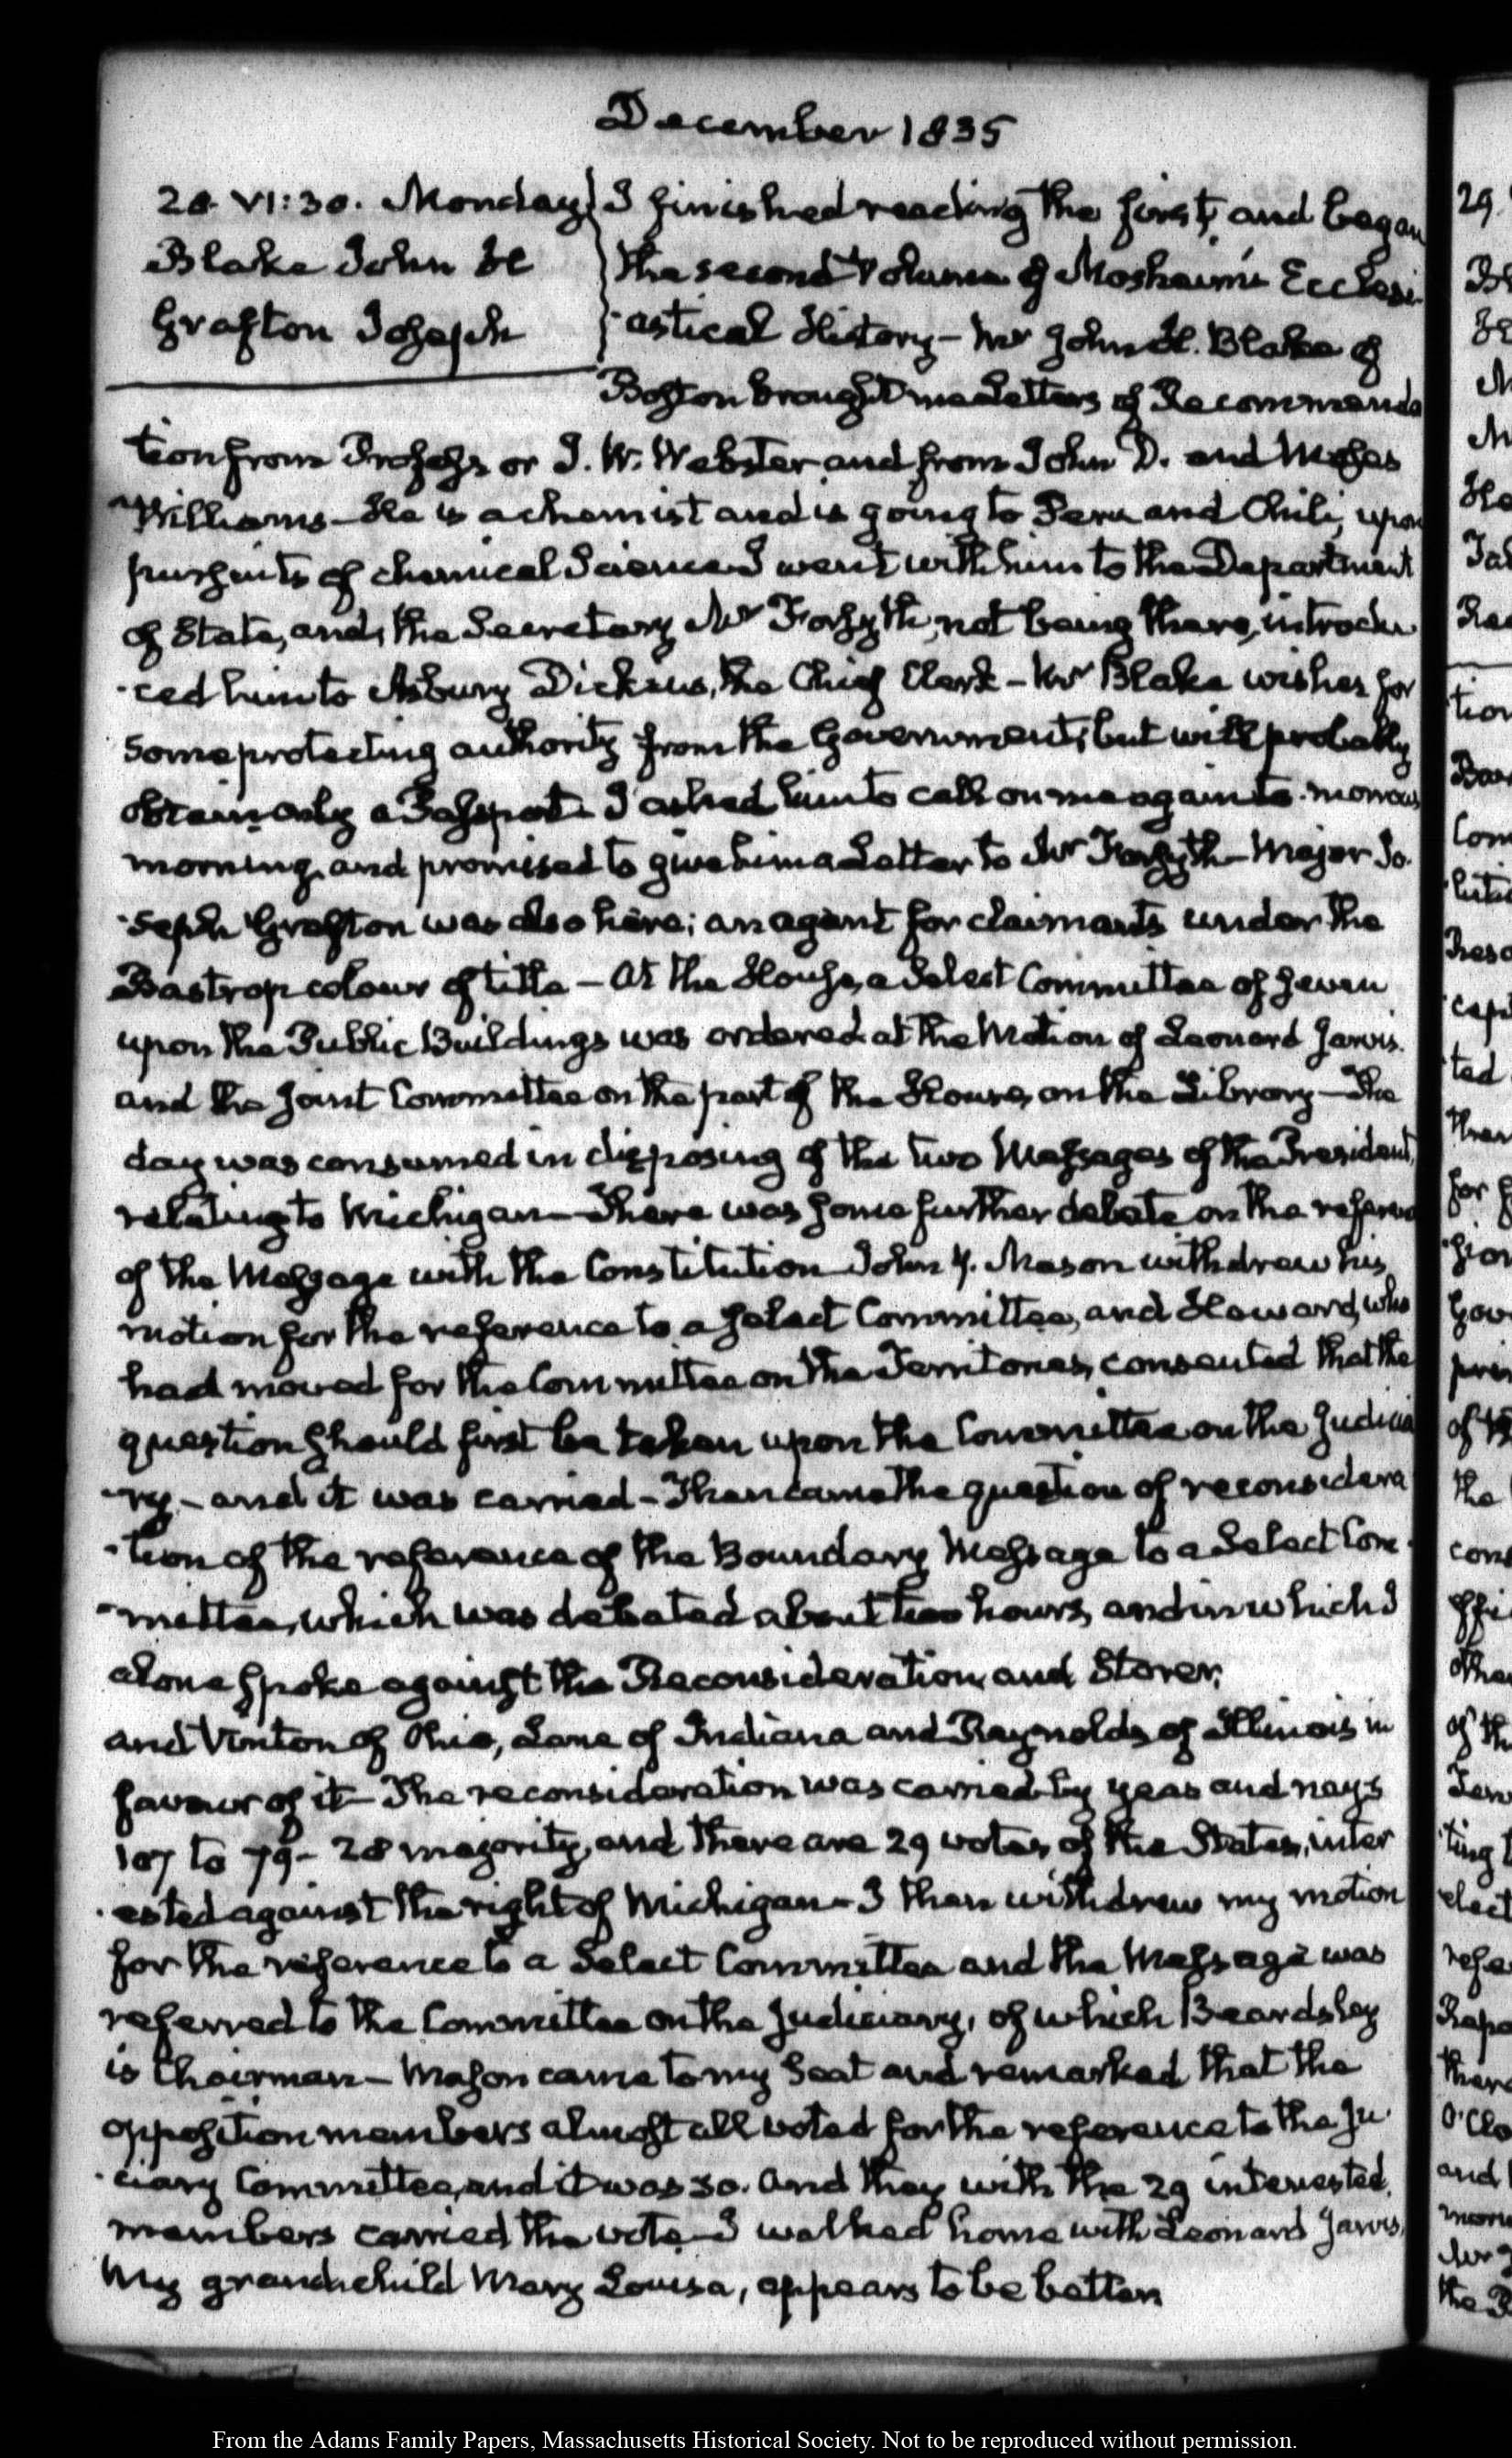 December 1835
28. VI:30. Monday
Blake John H
Grafton Joseph
I finished reading the first, and began
the second Volume of Mosheim's Ecclesi-
-astical History – Mr John H. Blake of
Boston brought me Letters of Recommenda
tion from Professor J. W. Webster and from John D. and Moses
Williams – He is a chemist and is going to Peru and Chili, upon
pursuits of chemical Science I went with him to the Department
of State, and, the Secretary Mr Forsyth, not being there, introdu
-ced him to Asbury Dickins, the Chief Clerk – Mr Blake wishes for
some protecting authority from the Government; but will probably
obtain only a Passport. I asked him to call on me again to-morrow
morning, and promised to give him a Letter to Mr Forsyth – Major Jo-
-seph Grafton was also here; an agent for claimants under the
Bastrop colour of title – At the House, a Select Committee of seven
upon the Public Buildings was ordered at the Motion of Leonard Jarvis.
and the joint Committee on the part of the House, on the Library – The
day was consumed in disposing of the two Messages of the President,
relating to Michigan – There was some further debate on the reference
of the Message with the Constitution John Y. Mason withdrew his
motion for the reference to a select Committee, and Howard, who
had moved for the Committee on the Territories, consented that the
question should first be taken upon the Committee on the Judicia
-ry – and it was carried – Then came the question of reconsidera
-tion of the reference of the Boundary Message to a Select Com-
-mittee, which was debated about two hours, and in which I
alone spoke against the Reconsideration, and Storer,
and Vinton of Ohio, Lane of Indiana and Reynolds of Illinois in
favour of it – The reconsideration was carried by yeas and nays
107 to 79 – 28 majority, and there are 29 votes of the States, inter
-ested against the right of Michigan – I then withdrew my motion
for the reference to a Select Committee and the Message was
referred to the Committee on the Judiciary, of which Beardsley
is Chairman – Mason came to my Seat and remarked that the
opposition members almost all voted for the reference to the Ju-
-ciary Committee, and it was so. And they with the 29 interested
members carried the vote – I walked home with Leonard Jarvis,
My grandchild Mary Louisa, appears to be better
29
From the Adams Family Papers, Massachusetts Historical Society. Not to be reproduced without permission.